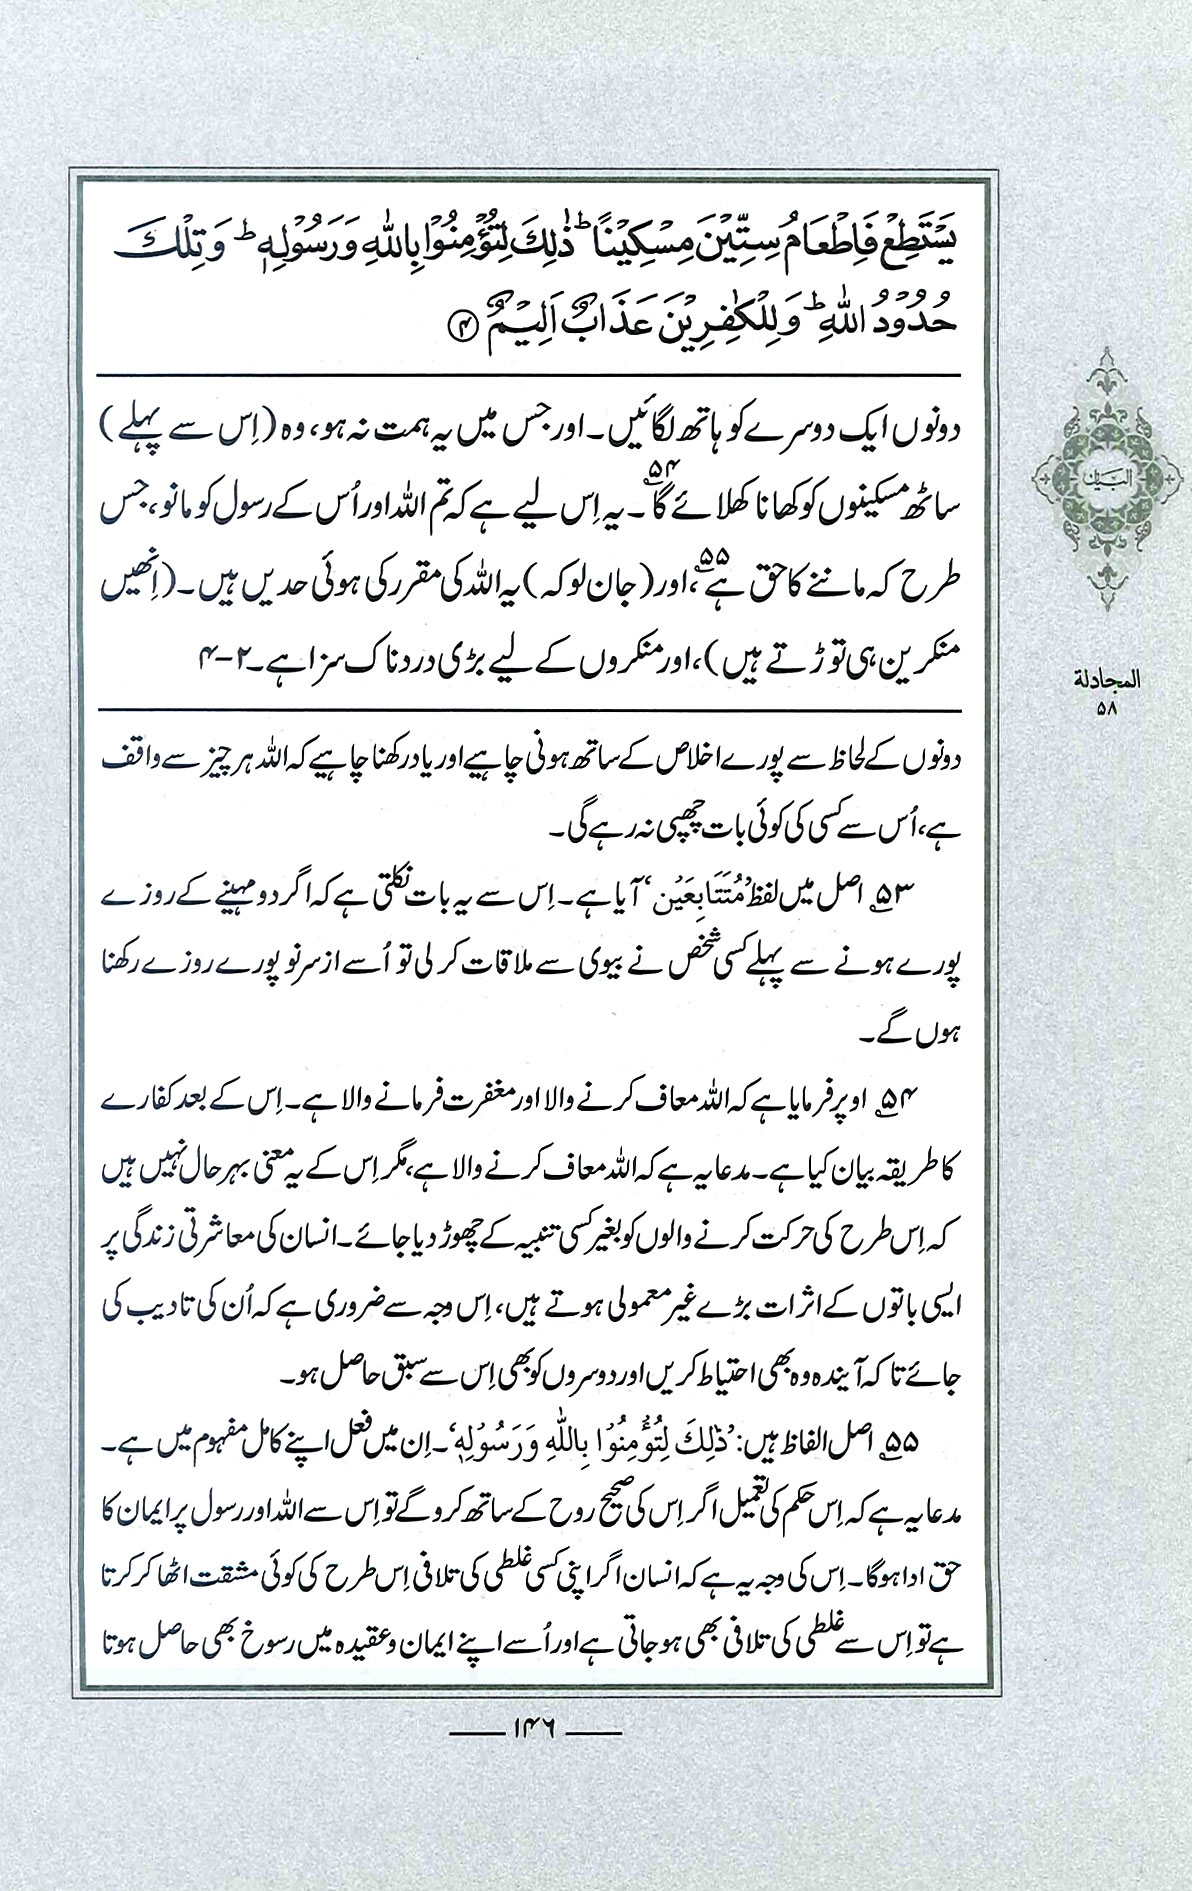 يَسْتَطِعْ فَاِطْعَامُ سِتِّيْنَ مِسْكِيْنًا ؕ ذٰلِكَ لِتُؤْمِنُوْا بِاللّٰهِ وَرَسُوْلِهٖ ؕ وَتِلْكَ
حُدُوْدُ اللّٰهِ ؕ وَلِلْكٰفِرِيْنَ عَذَابٌ اَلِيْمٌ ﴿۴﴾
دونوں ایک دوسرے کو ہاتھ لگائیں۔ اور جس میں یہ ہمت نہ ہو، وہ (اِس سے پہلے)
ساٹھ مسکینوں کو کھانا کھلائے گا۵۴۔ یہ اِس لیے ہے کہ تم اللہ اور اُس کے رسول کو مانو، جس
طرح کہ ماننے کا حق ہے۵۵، اور (جان لو کہ) یہ اللہ کی مقرر کی ہوئی حدیں ہیں۔ (اِنھیں
منکرین ہی توڑتے ہیں)، اور منکروں کے لیے بڑی دردناک سزا ہے۔ ۲-۴
البیان
المجادلة
۵۸
دونوں کے لحاظ سے پورے اخلاص کے ساتھ ہونی چاہیے اور یاد رکھنا چاہیے کہ اللہ ہر چیز سے واقف
ہے، اُس سے کسی کی کوئی بات چھپی نہ رہے گی۔
۵۳ اصل میں لفظ ’مُتَتَابِعَيْنِ‘ آیا ہے۔ اِس سے یہ بات نکلتی ہے کہ اگر دو مہینے کے روزے
پورے ہونے سے پہلے کسی شخص نے بیوی سے ملاقات کر لی تو اُسے ازسرنو پورے روزے رکھنا
ہوں گے۔
۵۴ اوپر فرمایا ہے کہ اللہ معاف کرنے والا اور مغفرت فرمانے والا ہے۔ اِس کے بعد کفارے
کا طریقہ بیان کیا ہے۔ مدعا یہ ہے کہ اللہ معاف کرنے والا ہے، مگر اِس کے یہ معنی بہرحال نہیں ہیں
کہ اِس طرح کی حرکت کرنے والوں کو بغیر کسی تنبیہ کے چھوڑ دیا جائے۔ انسان کی معاشرتی زندگی پر
ایسی باتوں کے اثرات بڑے غیر معمولی ہوتے ہیں، اِس وجہ سے ضروری ہے کہ اُن کی تادیب کی
جائے تاکہ آیندہ وہ بھی احتیاط کریں اور دوسروں کو بھی اِس سے سبق حاصل ہو۔
۵۵ اصل الفاظ ہیں: ’ذٰلِكَ لِتُؤْمِنُوْا بِاللّٰهِ وَرَسُوْلِهٖ‘۔ اِن میں فعل اپنے کامل مفہوم میں ہے۔
مدعا یہ ہے کہ اِس حکم کی تعمیل اگر اِس کی صحیح روح کے ساتھ کرو گے تو اِس سے اللہ اور رسول پر ایمان کا
حق ادا ہوگا۔ اِس کی وجہ یہ ہے کہ انسان اگر اپنی کسی غلطی کی تلافی اِس طرح کی کوئی مشقت اٹھا کر کرتا
ہے تو اِس سے غلطی کی تلافی بھی ہو جاتی ہے اور اُسے اپنے ایمان و عقیدہ میں رسوخ بھی حاصل ہوتا
۱۴۶